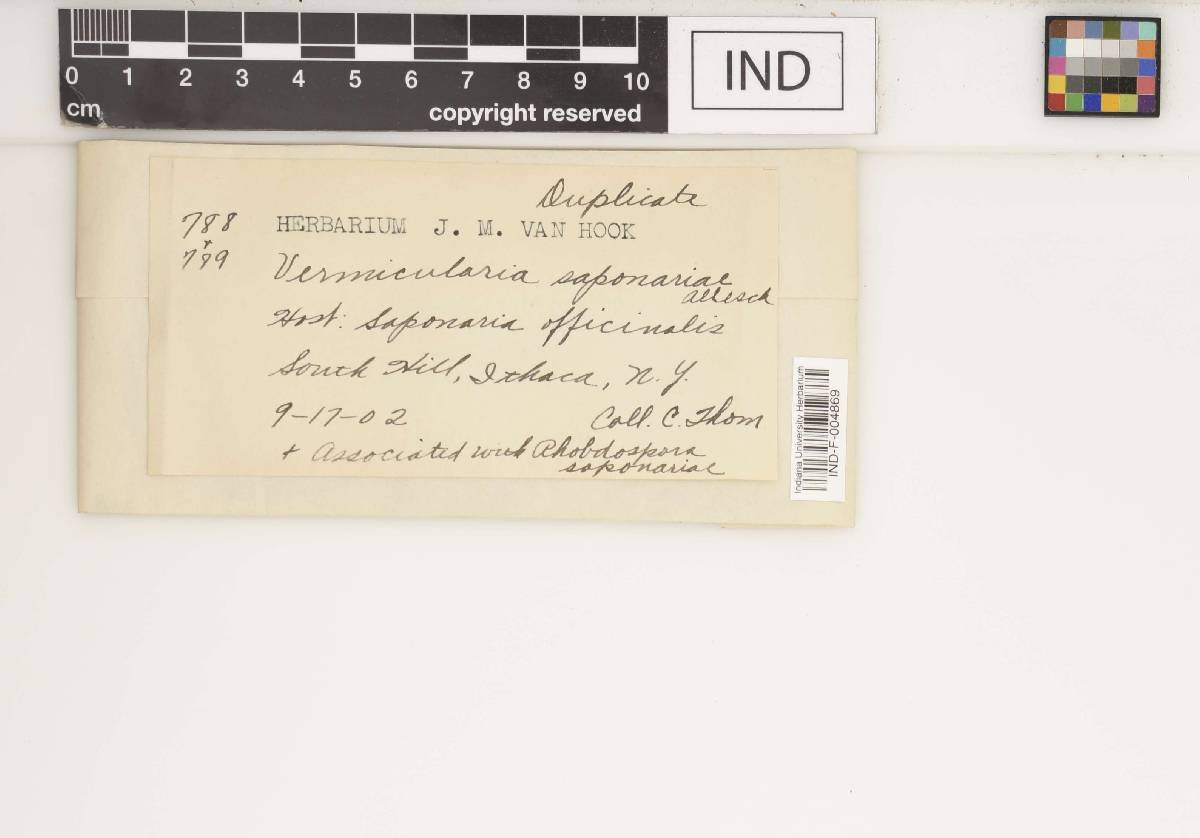 0 1 2 3 4 5 6 7 8 9 10
cm
copyright reserved
IND
Duplicate
788 HERBARIUM J. M. VAN HOOK
+
789 Vermicularia saponariae
Allesch
Host: Saponaria officinalis
South Hill, Ithaca, N.Y.
9-17-02 Coll. C. Thom
+ Associated with Rhabdospora
saponariae
Indiana University Herbarium
IND-F-004869